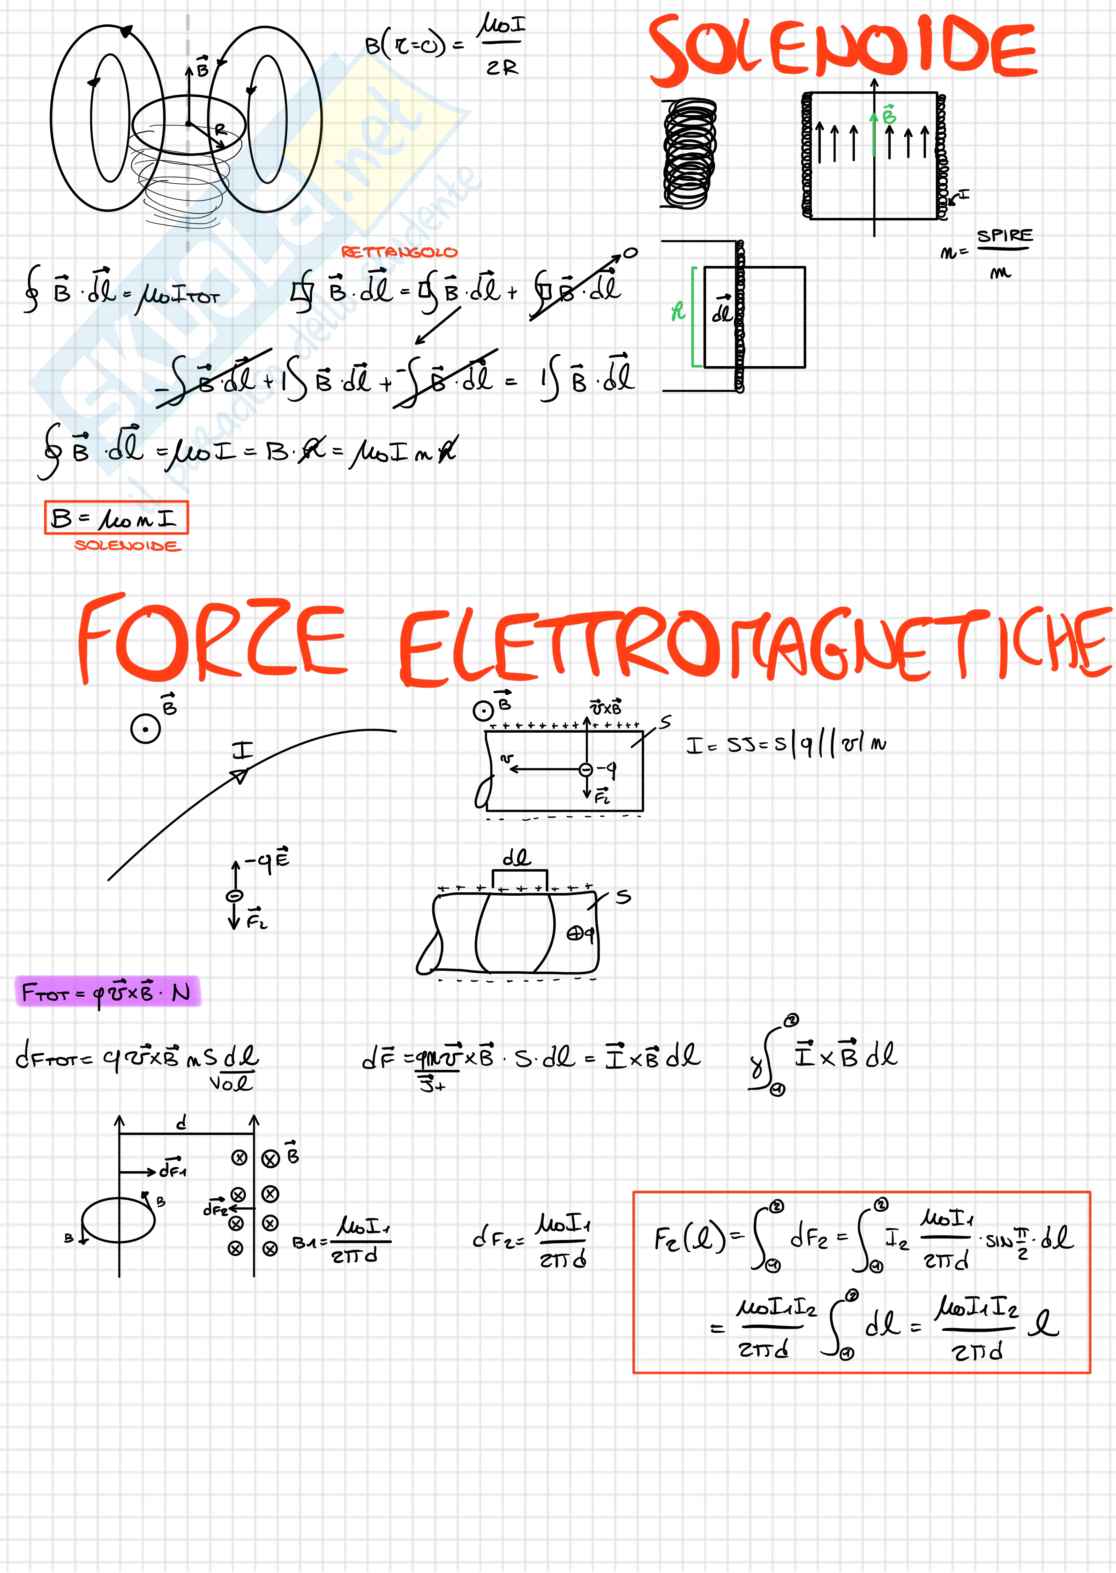 B(r=0) = μ0I / 2R
SOLENOIDE
B⃗
R
B⃗
I
n = SPIRE / m
RETTANGOLO
∮ B⃗ · dl⃗ = μ0 ITOT
∮ B⃗ · dl⃗ = ∮ B⃗ · dl⃗ + ∮ B⃗ · dl⃗ 0
h
dl⃗
-∫ B⃗ · dl⃗ + 1∫ B⃗ · dl⃗ + -∫ B⃗ · dl⃗ = 1∫ B⃗ · dl⃗
∮ B⃗ · dl⃗ = μ0 I = B · h = μ0 I n h
B = μ0 n I
SOLENOIDE
FORZE ELETTROMAGNETICHE
B⃗
I
B⃗
v⃗xB⃗
+ + + + + + + + + + + + + +
S
v
-q
F⃗L
I = SJ = S|q||v|n
-qE⃗
F⃗L
dl
+ + + + + + + +
S
q
FTOT = qv⃗xB⃗ · N
dFTOT = qv⃗xB⃗ n S dl
Vol
dF⃗ = qnv⃗ x B⃗ · S · dl = I⃗ x B⃗ dl
J⃗+
γ∫①② I⃗ x B⃗ dl
d
dF1⃗
B
B
B⃗
dF2⃗
B1 = μ0I1 / 2πd
dF2 = μ0I1 / 2πd
F2(l) = ∫①② dF2 = ∫①② I2 μ0I1 / 2πd · sin π/2 · dl
= μ0I1I2 / 2πd ∫①② dl = μ0I1I2 / 2πd l
SKUOLA.net